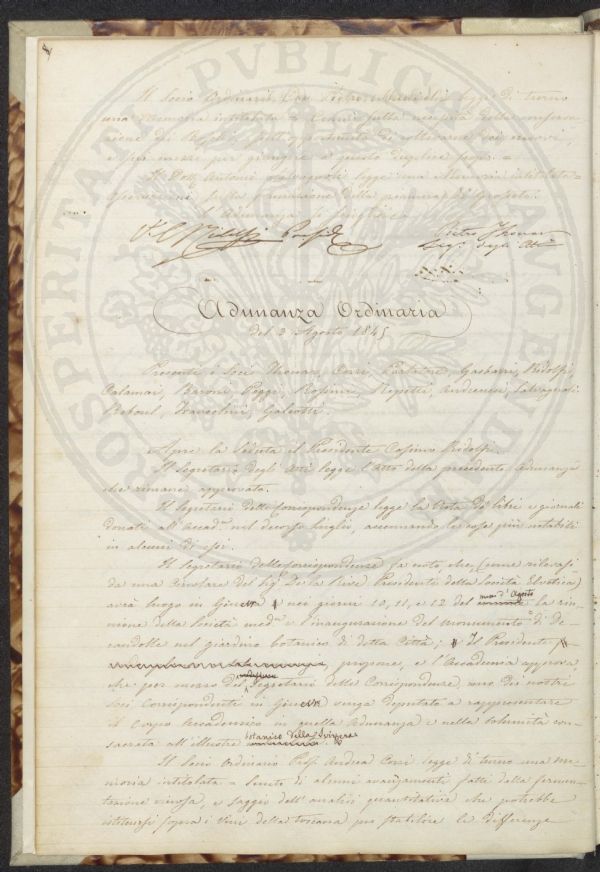 Il Socio Ordinario Cav. Pietro legge di turno
una Memoria intitolata = Cenni sulla
zione dei
e per giungere a questo fine. =
Il Dott. Antonio Salvagnoli legge una Memoria intitolata =
sulla della di Grosseto.
L'Adunanza è sciolta.
C. Ridolfi Presid.
Pietro Thouar
Seg. degli Atti
Adunanza Ordinaria
del 3 Agosto 1845
Presenti i Socj Thouar, Corsi, Parlatore, Gasbarri, Ridolfi,
Calamai, Baroni, Poggi, Andreucci, Salvagnoli
Reboul, Galeotti.
Apre la Seduta il Presidente Cosimo Ridolfi.
Il Segretario degli Atti legge l'Atto della precedente adunanza
che rimane approvato.
Il Segretario delle Corrispondenze legge la Nota dei libri e giornali
donati all'Accad. nel decorso luglio, accennando le cose più notabili
in alcuni di essi.
Il Segretario delle Corrispondenze fa noto, che (come rilevasi
da una Circolare del Sig. De la Rive Presidente della Società Elvetica)
avrà luogo in Ginevra nei giorni 10, 11, e 12 del mese d'Agosto la riu-
nione della Società med. e l'inaugurazione del monumento di De-
candolle nel giardino botanico di detta Città; Il Presidente
propone, e l'Accademia approva,
che per mezzo del Segretario delle Corrispondenze, uno dei nostri
Socj Corrispondenti in Ginevra venga deputato a rappresentare
il Corpo Accademico in quella Adunanza e nella solennità con-
sacrata all'illustre botanico della Svizzera.
Il Socio Ordinario Prof. Andrea Corsi legge di turno una me-
moria intitolata = di alcuni avanzamenti fatti dalla fermen-
tazione vinosa, e saggio dell'analisi quantitativa che potrebbe
istituirsi sopra i vini della toscana per stabilire le differenze
PROSPERITATI PUBLICAE AUGENDAE